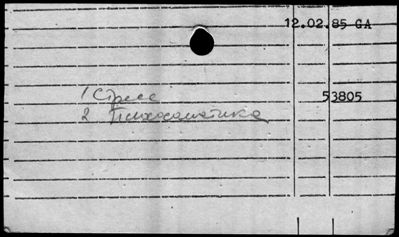 12.02.85 GA
1 Стресс 53805
2 Психосоматика